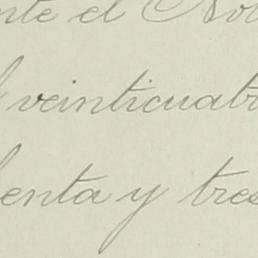 nte el No
veinticuatr
enta y tres